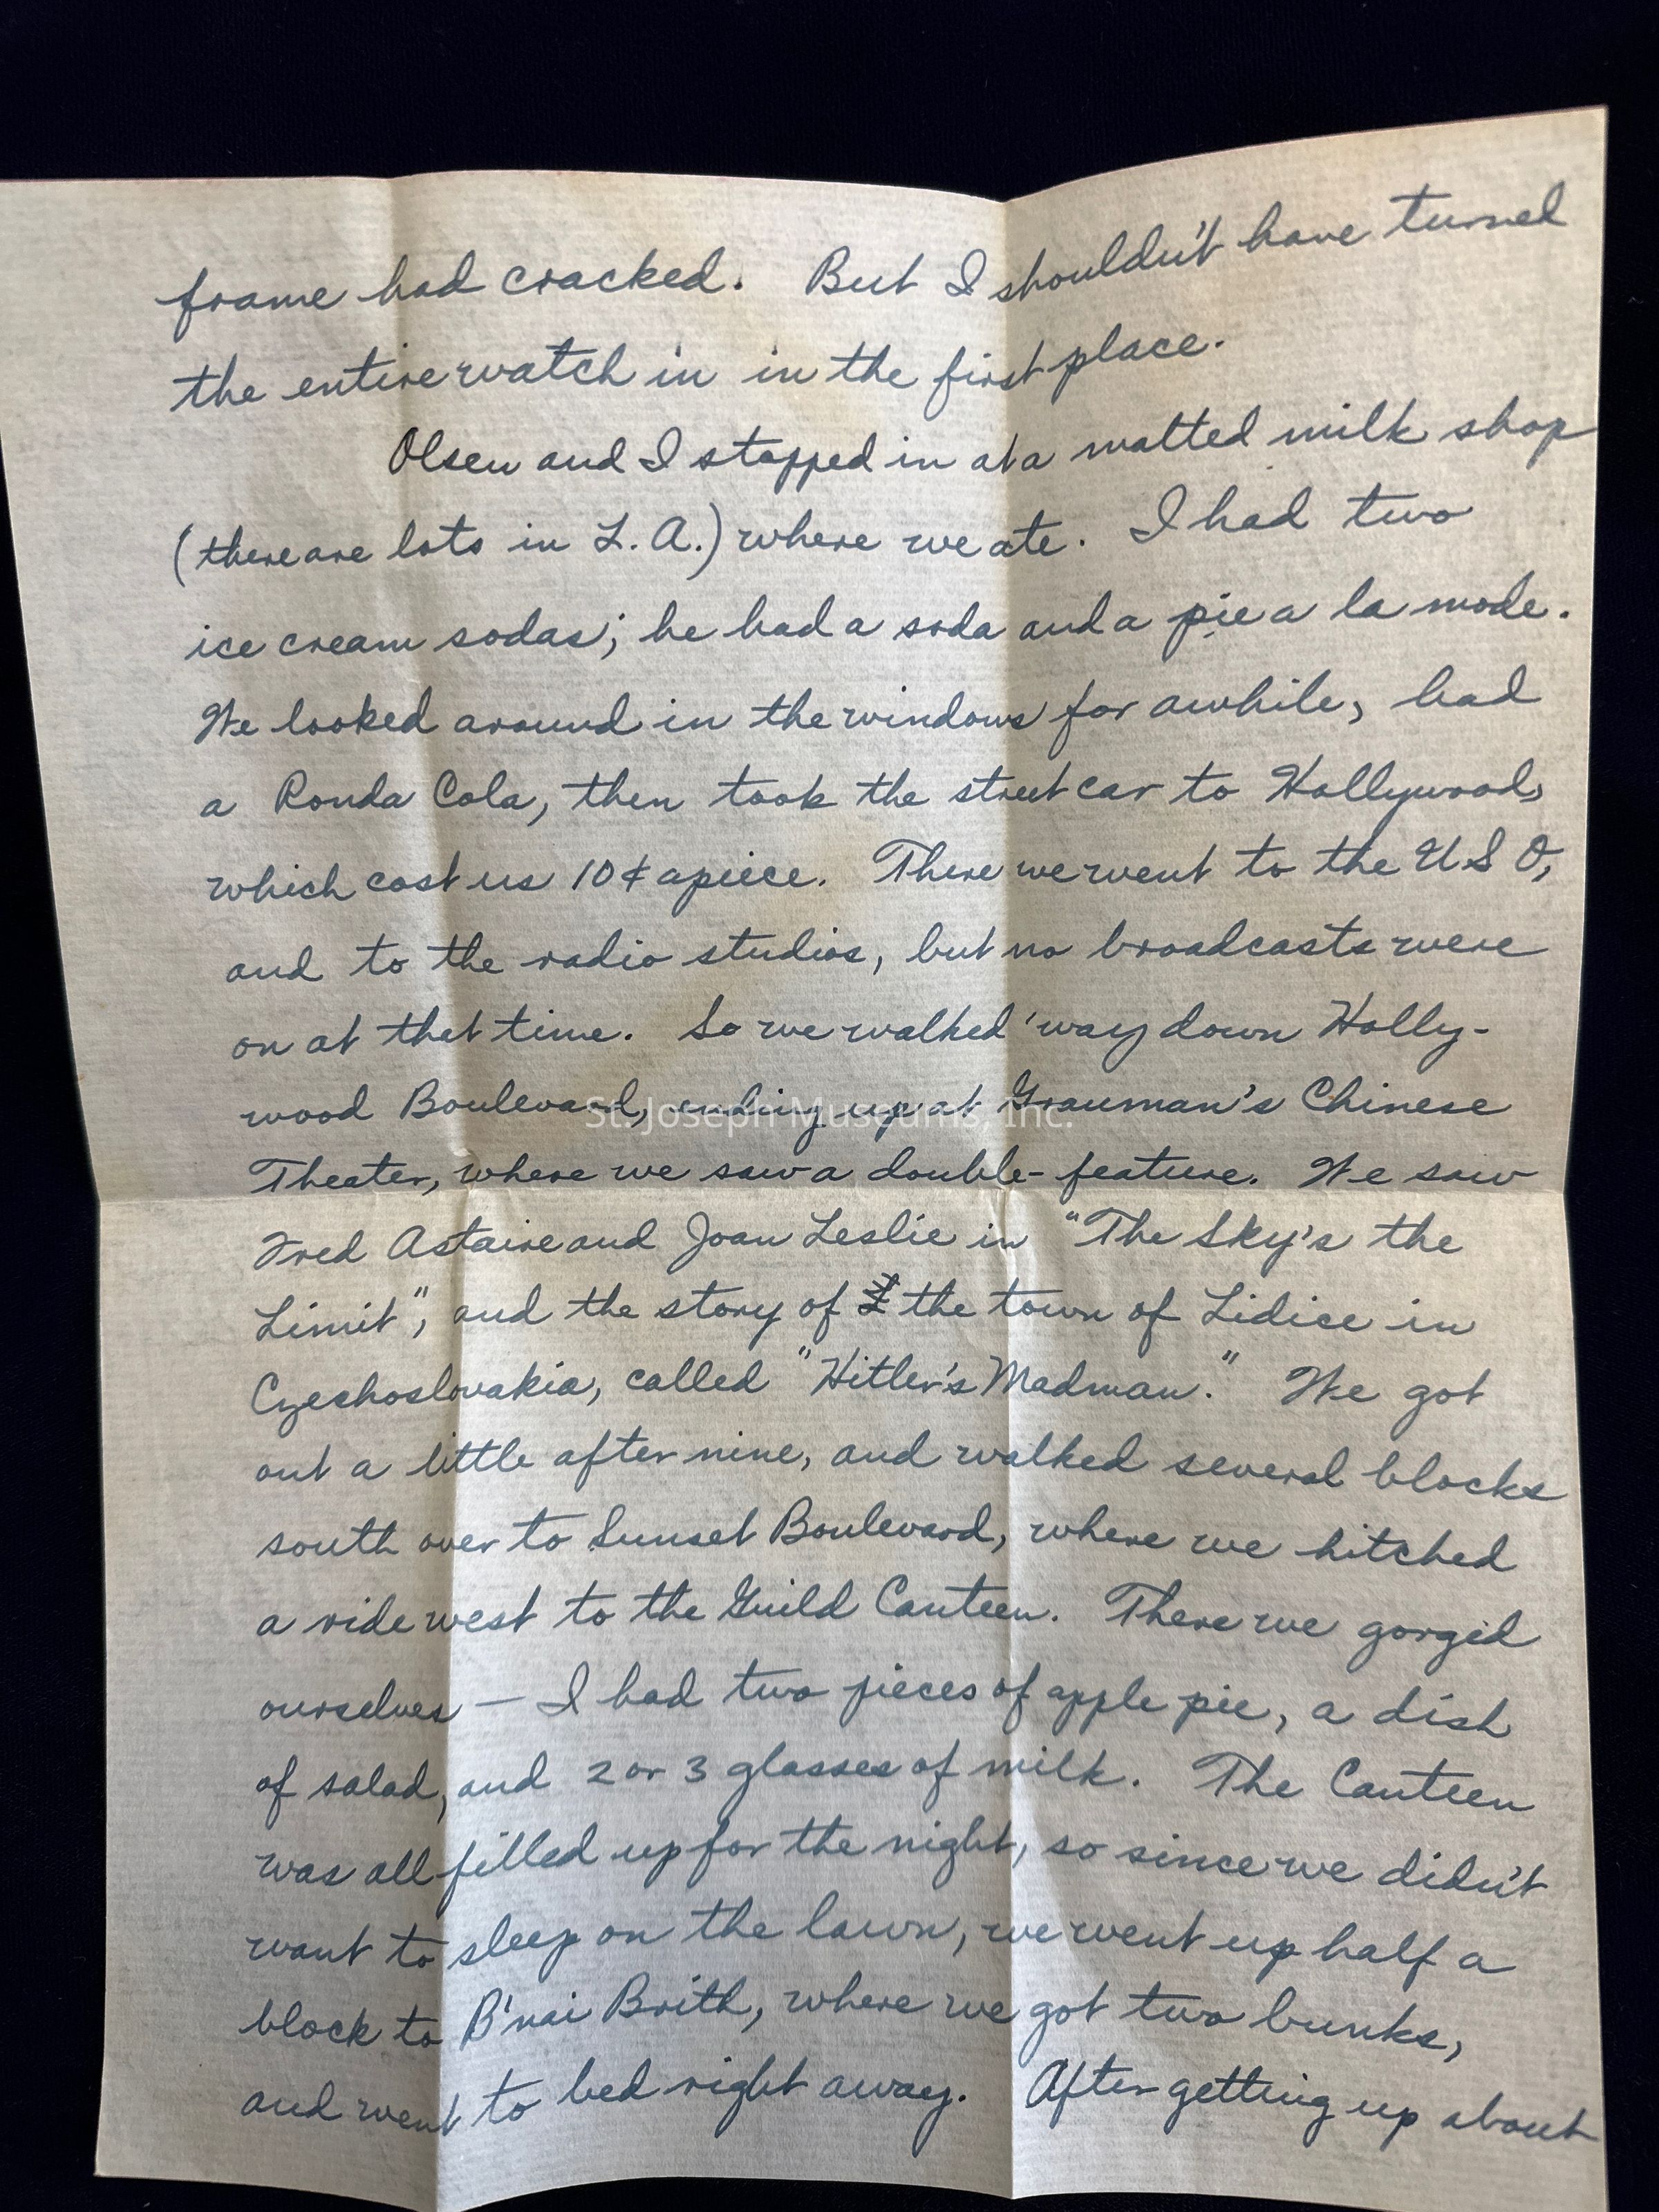 frame had cracked. But I shouldn't have turned
the entire watch in in the first place.
Olsen and I stopped in at a malted milk shop
(there are lots in L.A.) where we ate. I had two
ice cream sodas; he had a soda and a pie a la mode.
We looked around in the windows for awhile, had
a Ronda Cola, then took the street car to Hollywood,
which cost us 10¢ apiece. There we went to the USO,
and to the radio studios, but no broadcasts were
on at that time. So we walked 'way down Holly-
wood Boulevard, ending up at Grauman's Chinese
St. Joseph Museums, Inc.
Theater, where we saw a double-feature. We saw
Fred Astaire and Joan Leslie in "The Sky's the
Limit", and the story of the town of Lidice in
Czechoslovakia, called "Hitler's Madman." We got
out a little after nine, and walked several blocks
south over to Sunset Boulevard, where we hitched
a ride west to the Guild Canteen. There we gorged
ourselves — I had two pieces of apple pie, a dish
of salad, and 2 or 3 glasses of milk. The Canteen
was all filled up for the night, so since we didn't
want to sleep on the lawn, we went up half a
block to B'nai Brith, where we got two bunks,
and went to bed right away. After getting up about